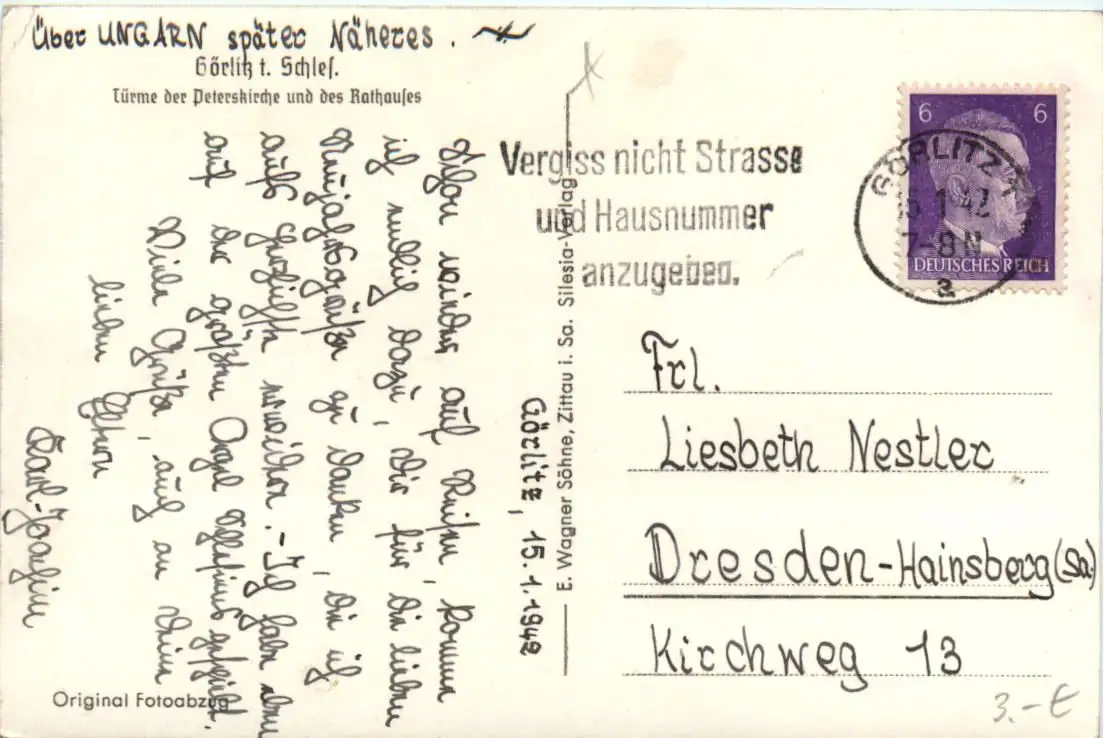 Über UNGARN später Näheres.
Görlitz i. Schles.
Türme der Peterskirche und des Rathauses
Görlitz, 15.1.1942
Schon wieder auf Reisen, komme
ich endlich dazu, Dir für die lieben
Neujahrsgrüße zu danken, die ich
aufs herzlichste erwidere. - Ich habe eben
auf der größten Orgel Schlesiens gespielt.
Viele Grüße, auch an Deine
lieben Eltern
Karl-Joachim
Original Fotoabzug
E. Wagner Söhne, Zittau i. Sa. Silesia-Verlag
Vergiss nicht Strasse
und Hausnummer
anzugeben.
GÖRLITZ 1
15.1.42
7-8 N
a
6 6
DEUTSCHES REICH
Frl.
Liesbeth Nestler
Dresden-Hainsberg (Sa.)
Kirchweg 13
3.-€